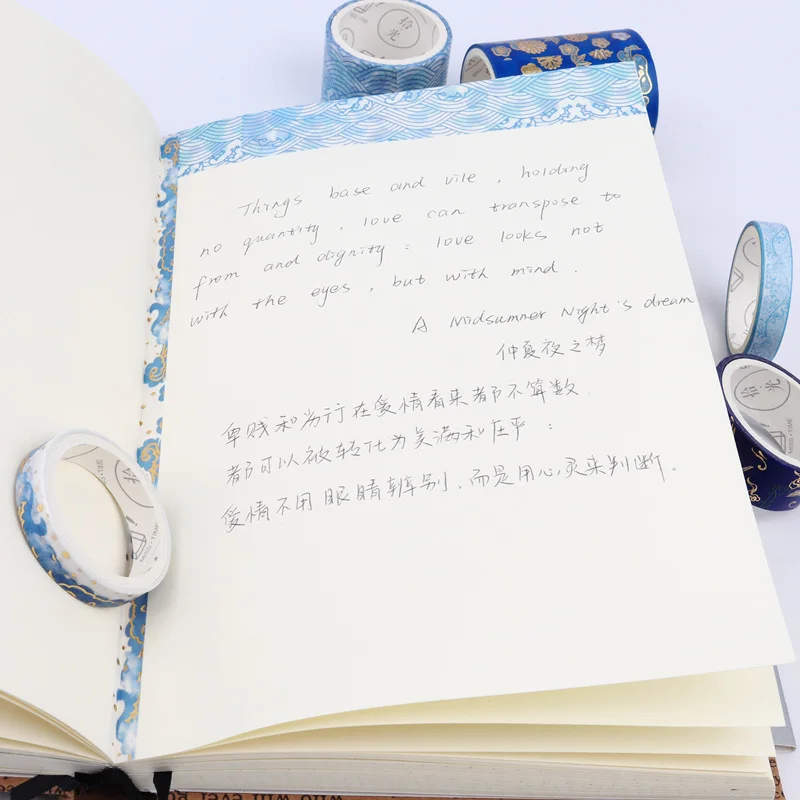 拾光
Things base and vile , holding
no quantity , love can transpose to
from and dignity : love looks not
with the eyes , but with mind .
A Midsumner Night's dream
仲夏夜之梦
卑贱和劣行在爱情看来都不算数.
都可以被转化为美满和庄严:
爱情不用眼睛辨别,而是用心灵来判断.
拾光
MISS·TIME
MISS·TIME